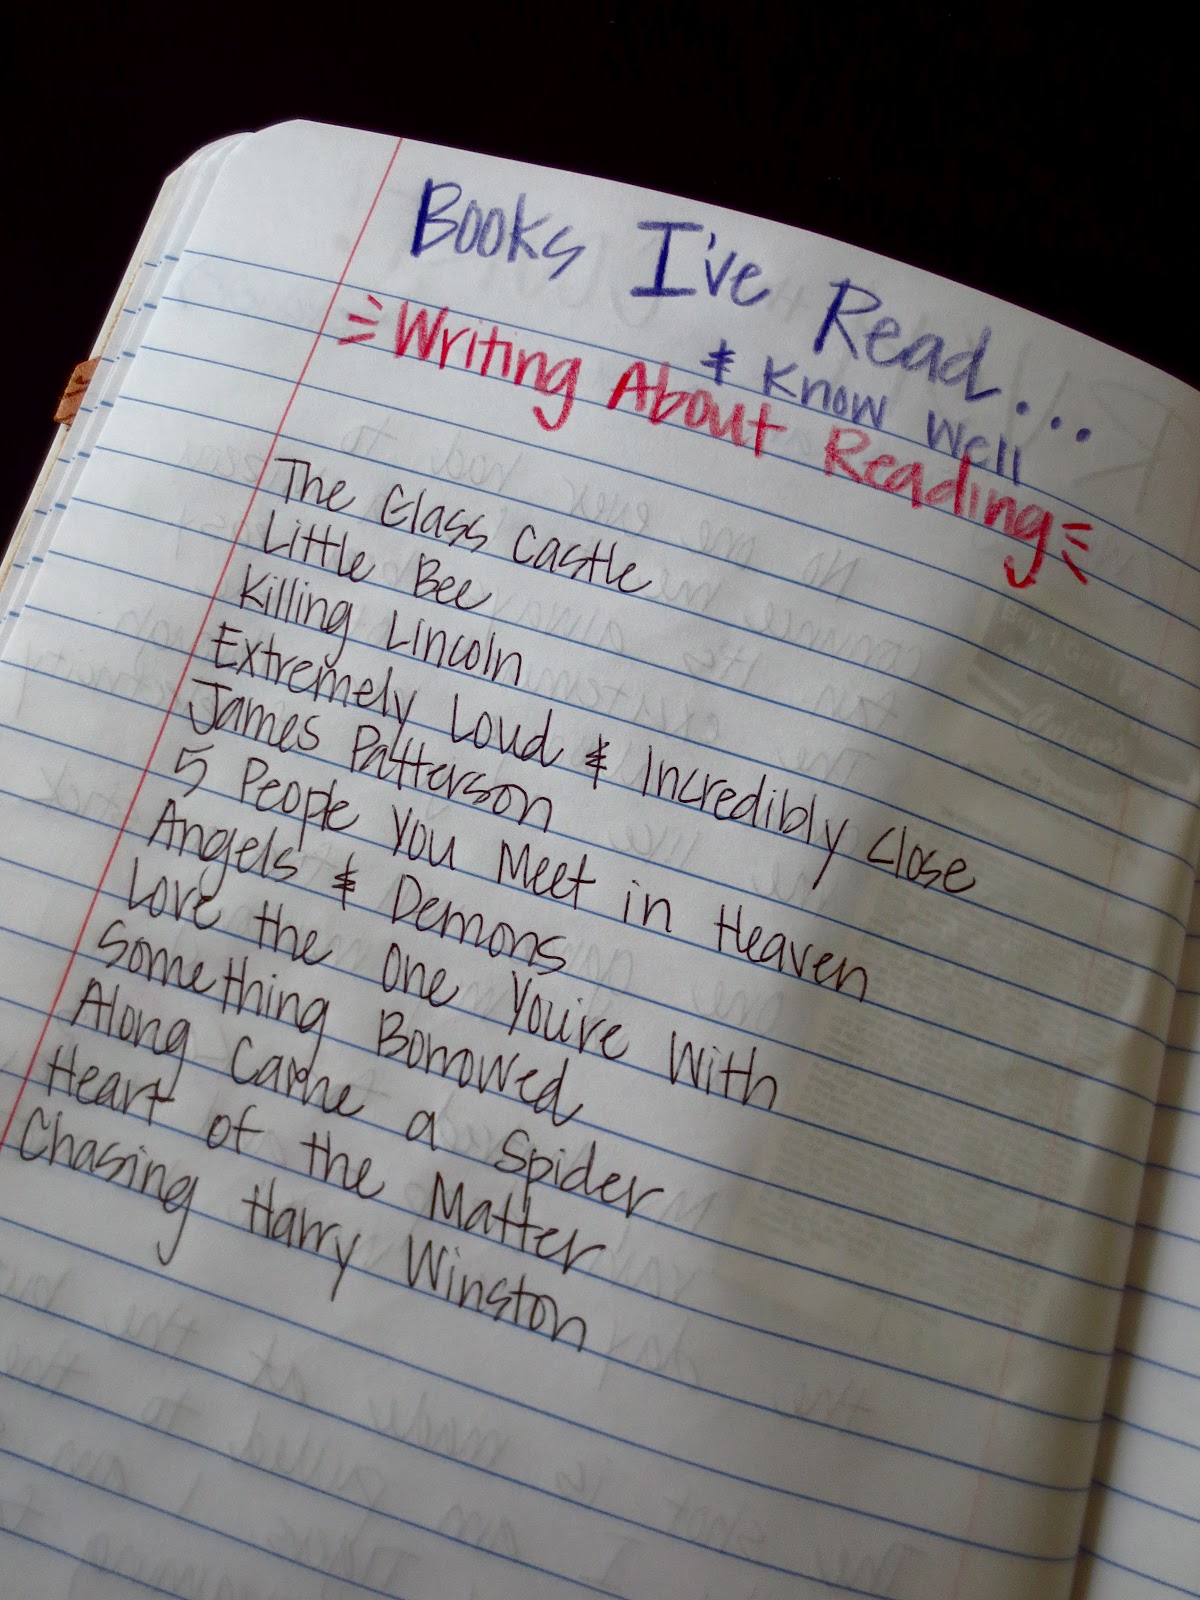 Books I've Read...
& Know Well
Writing About Reading
The Glass Castle
Little Bee
Killing Lincoln
Extremely Loud & Incredibly Close
James Patterson
5 People You Meet in Heaven
Angels & Demons
Love the One You're With
Something Borrowed
Along Came a Spider
Heart of the Matter
Chasing Harry Winston